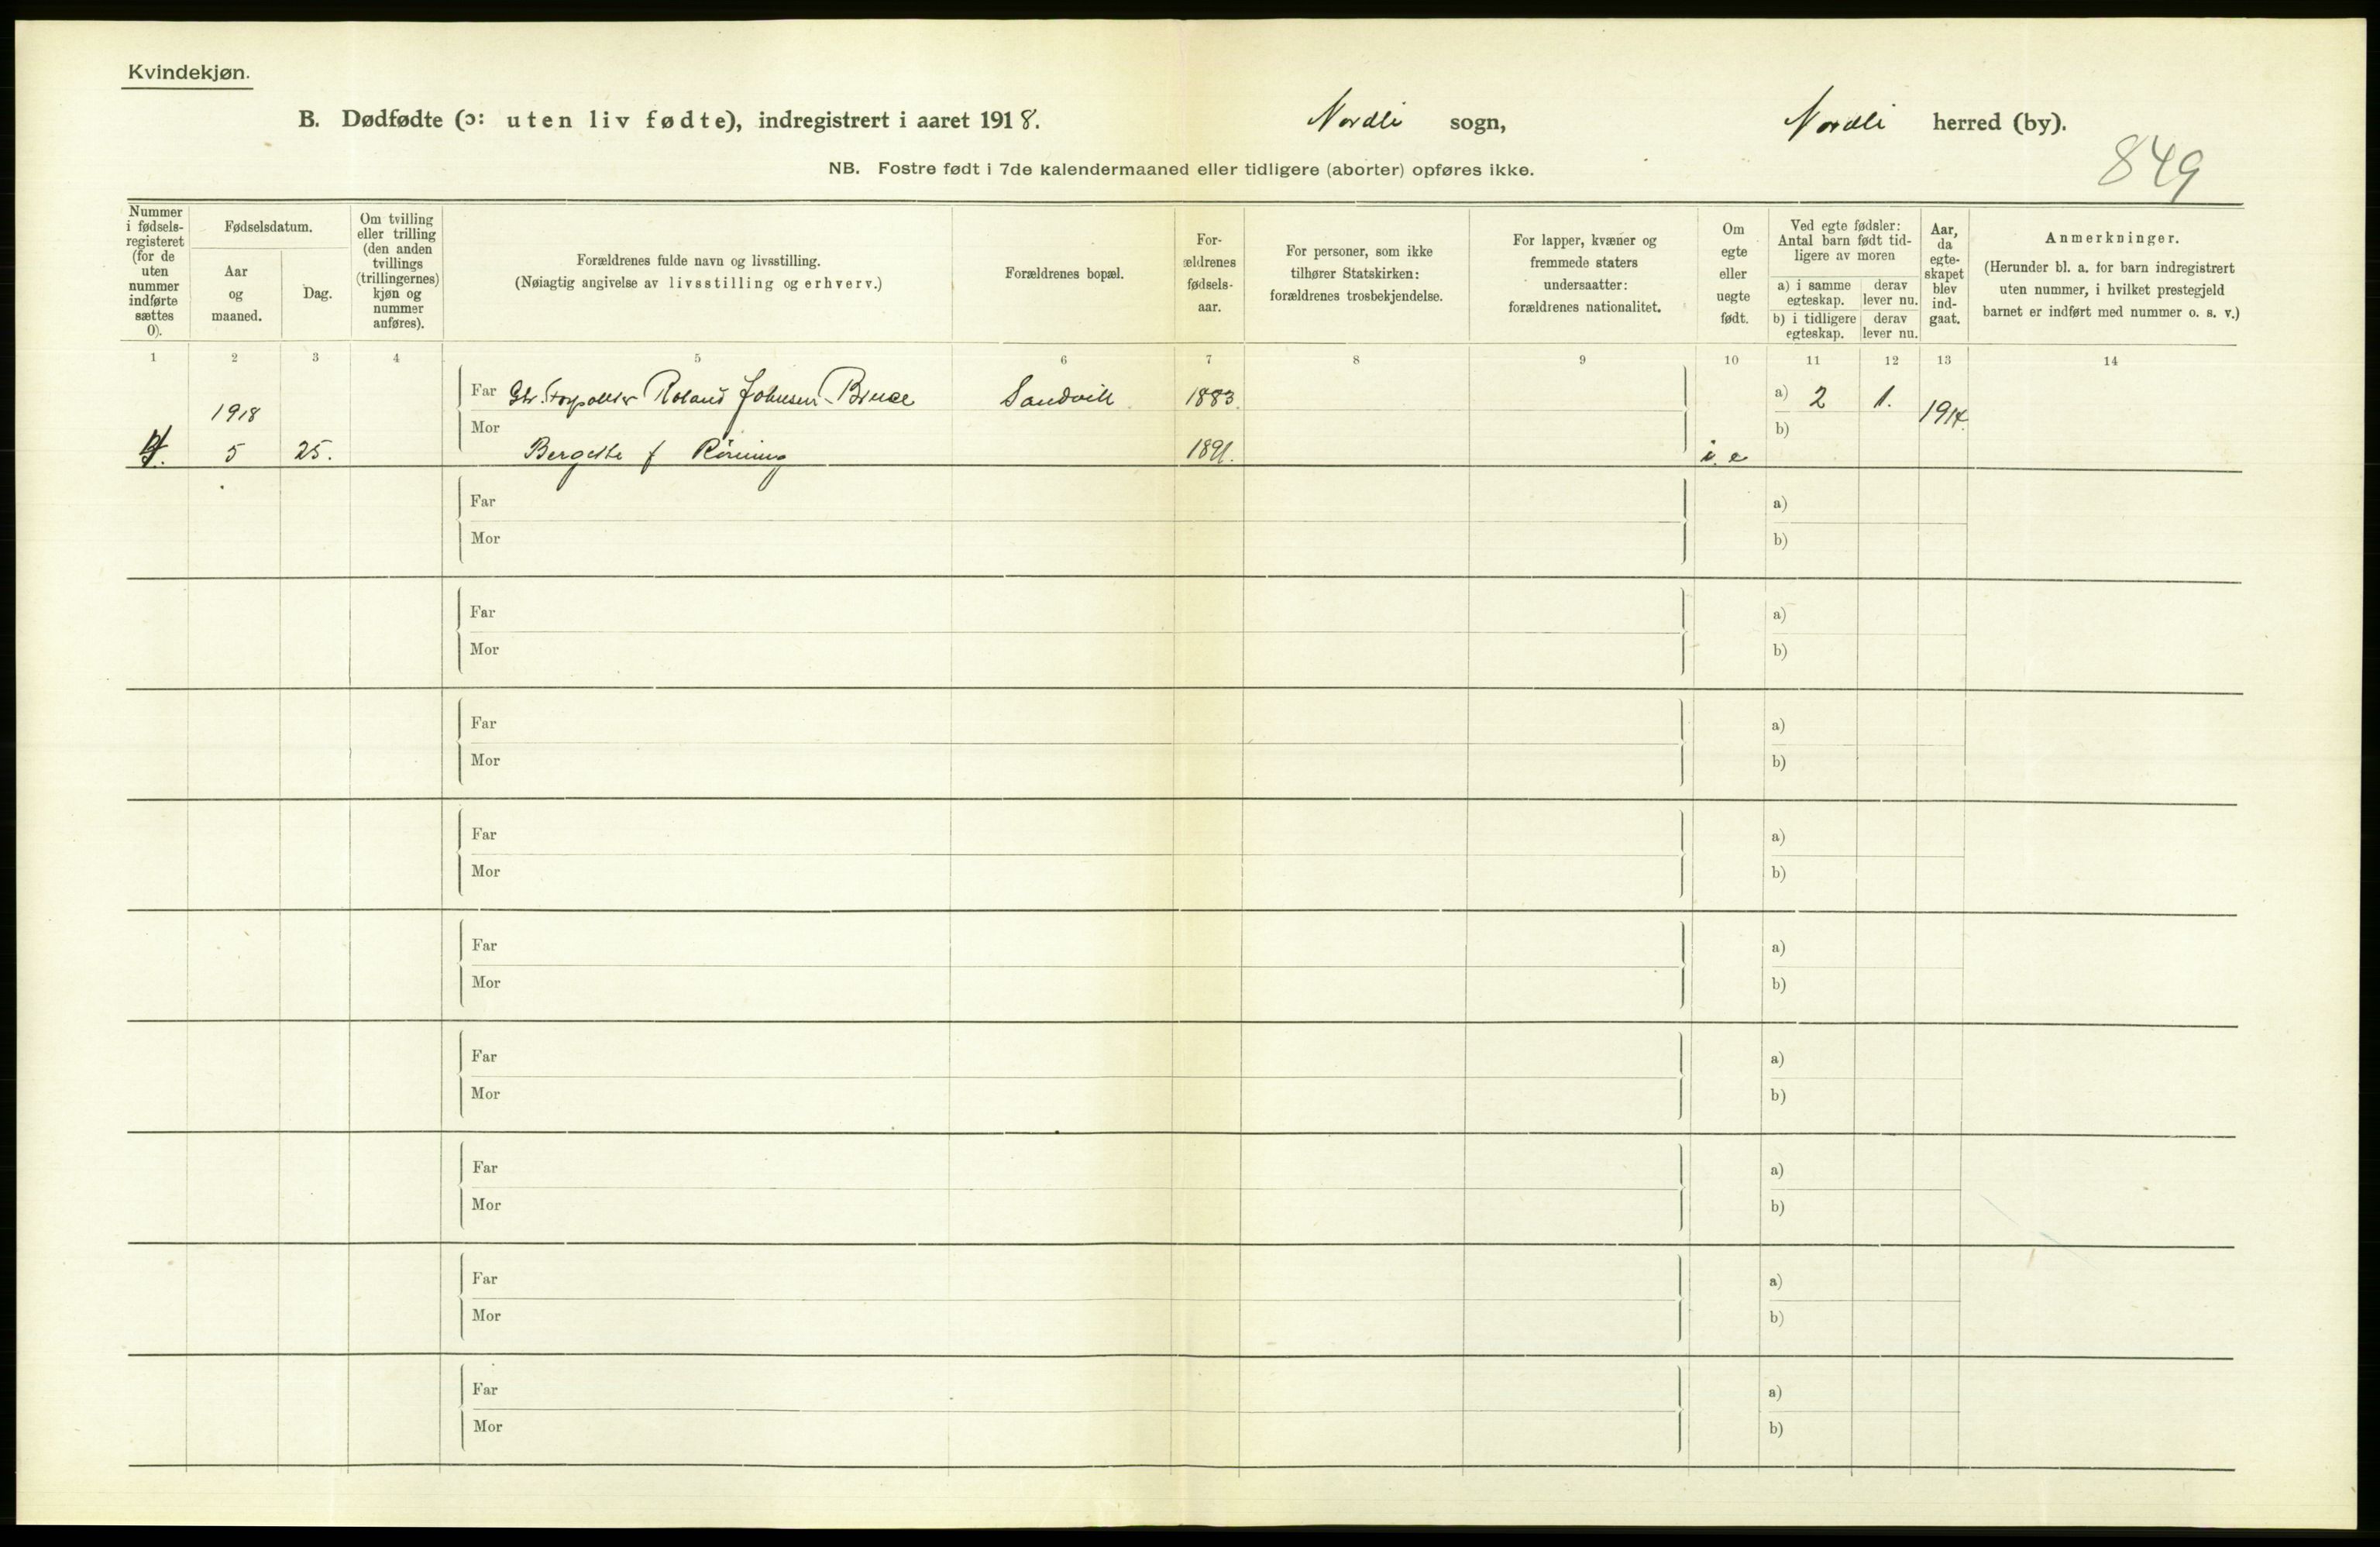 Kvindekjøn.
B. Dødfødte (ɔ: uten liv fødte), indregistrert i aaret 1918. Nordli sogn, Nordli herred (by).
849
NB. Fostre født i 7de kalendermaaned eller tidligere (aborter) opføres ikke.
Nummer
i fødsels-
registeret
(for de
uten
nummer
indførte
sættes
0).
Fødselsdatum.
Aar
og
maaned.
Dag.
Om tvilling
eller trilling
(den anden
tvillings
(trillingernes)
kjøn og
nummer
anføres).
Forældrenes fulde navn og livsstilling.
(Nøiagtig angivelse av livsstilling og erhverv.)
Forældrenes bopæl.
For-
ældrenes
fødsels-
aar.
For personer, som ikke
tilhører Statskirken:
forældrenes trosbekjendelse.
For lapper, kvæner og
fremmede staters
undersaatter:
forældrenes nationalitet.
Om
egte
eller
uegte
født.
Ved egte fødsler:
Antal barn født tid-
ligere av moren
a) i samme
egteskap.
derav
lever nu.
b) i tidligere
egteskap.
derav
lever nu.
Aar,
da
egte-
skapet
blev
ind-
gaat.
Anmerkninger.
(Herunder bl. a. for barn indregistrert
uten nummer, i hvilket prestegjeld
barnet er indført med nummer o. s. v.)
1 2 3 4 5 6 7 8 9 10 11 12 13 14
Far Roland Johnsen Bruce Sandvik 1883. a) 2 1.
1918 1914.
Mor b)
5 25. f Röining 1891. i. e
Far a)
Mor b)
Far a)
Mor b)
Far a)
Mor b)
Far a)
Mor b)
Far a)
Mor b)
Far a)
Mor b)
Far a)
Mor b)
Far a)
Mor b)
Far a)
Mor b)